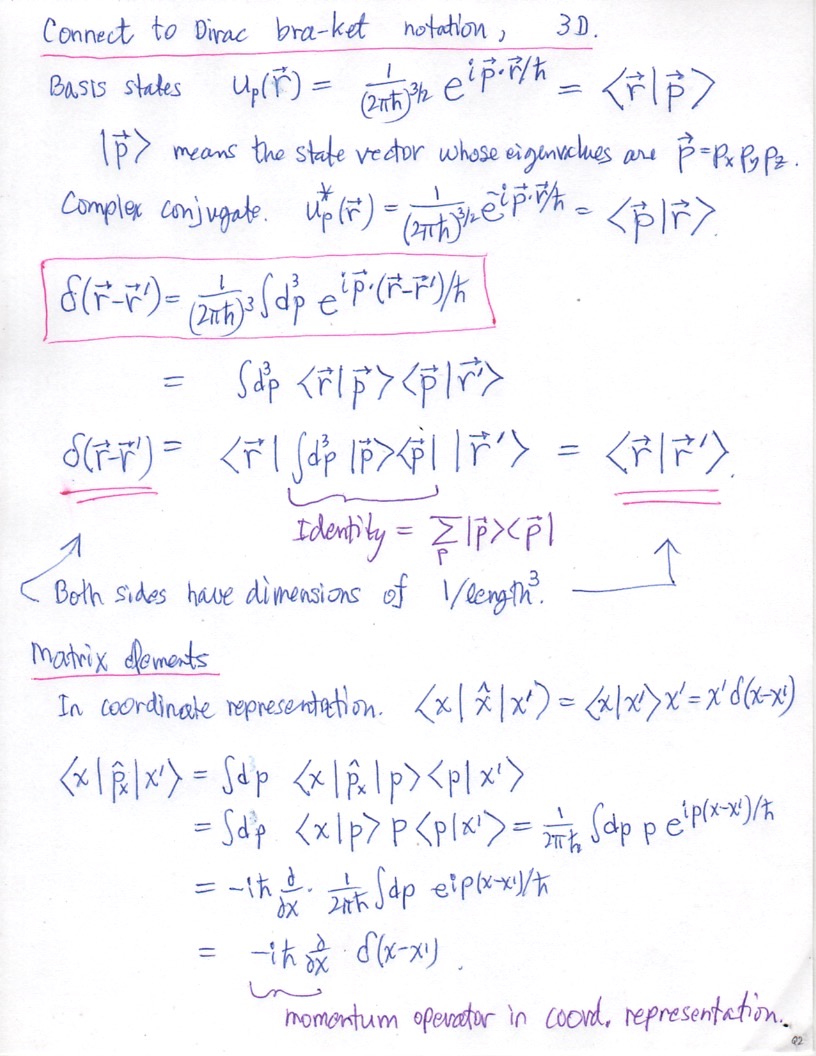 Connect to Dirac bra-ket notation, 3D.
Basis states u_p(r⃗) = 1/(2πħ)^3/2 e^{i p⃗·r⃗/ħ} = ⟨r⃗|p⃗⟩
|p⃗⟩ means the state vector whose eigenvalues are p⃗ = p_x p_y p_z.
Complex conjugate. u_p^*(r⃗) = 1/(2πħ)^3/2 e^{-i p⃗·r⃗/ħ} = ⟨p⃗|r⃗⟩.
δ(r⃗-r⃗') = 1/(2πħ)^3 ∫d^3p e^{i p⃗·(r⃗-r⃗')/ħ}
= ∫d^3p ⟨r⃗|p⃗⟩⟨p⃗|r⃗'⟩
δ(r⃗-r⃗') = ⟨r⃗| ∫d^3p |p⃗⟩⟨p⃗| |r⃗'⟩ = ⟨r⃗|r⃗'⟩.
Identity = Σ_p |p⃗⟩⟨p⃗|
Both sides have dimensions of 1/length^3.
Matrix elements
In coordinate representation. ⟨x|x̂|x'⟩ = ⟨x|x'⟩x' = x'δ(x-x')
⟨x|p̂_x|x'⟩ = ∫dp ⟨x|p̂_x|p⟩⟨p|x'⟩
= ∫dp ⟨x|p⟩ p ⟨p|x'⟩ = 1/2πħ ∫dp p e^{ip(x-x')/ħ}
= -iħ ∂/∂x · 1/2πħ ∫dp e^{ip(x-x')/ħ}
= -iħ ∂/∂x · δ(x-x').
momentum operator in coord. representation.
92